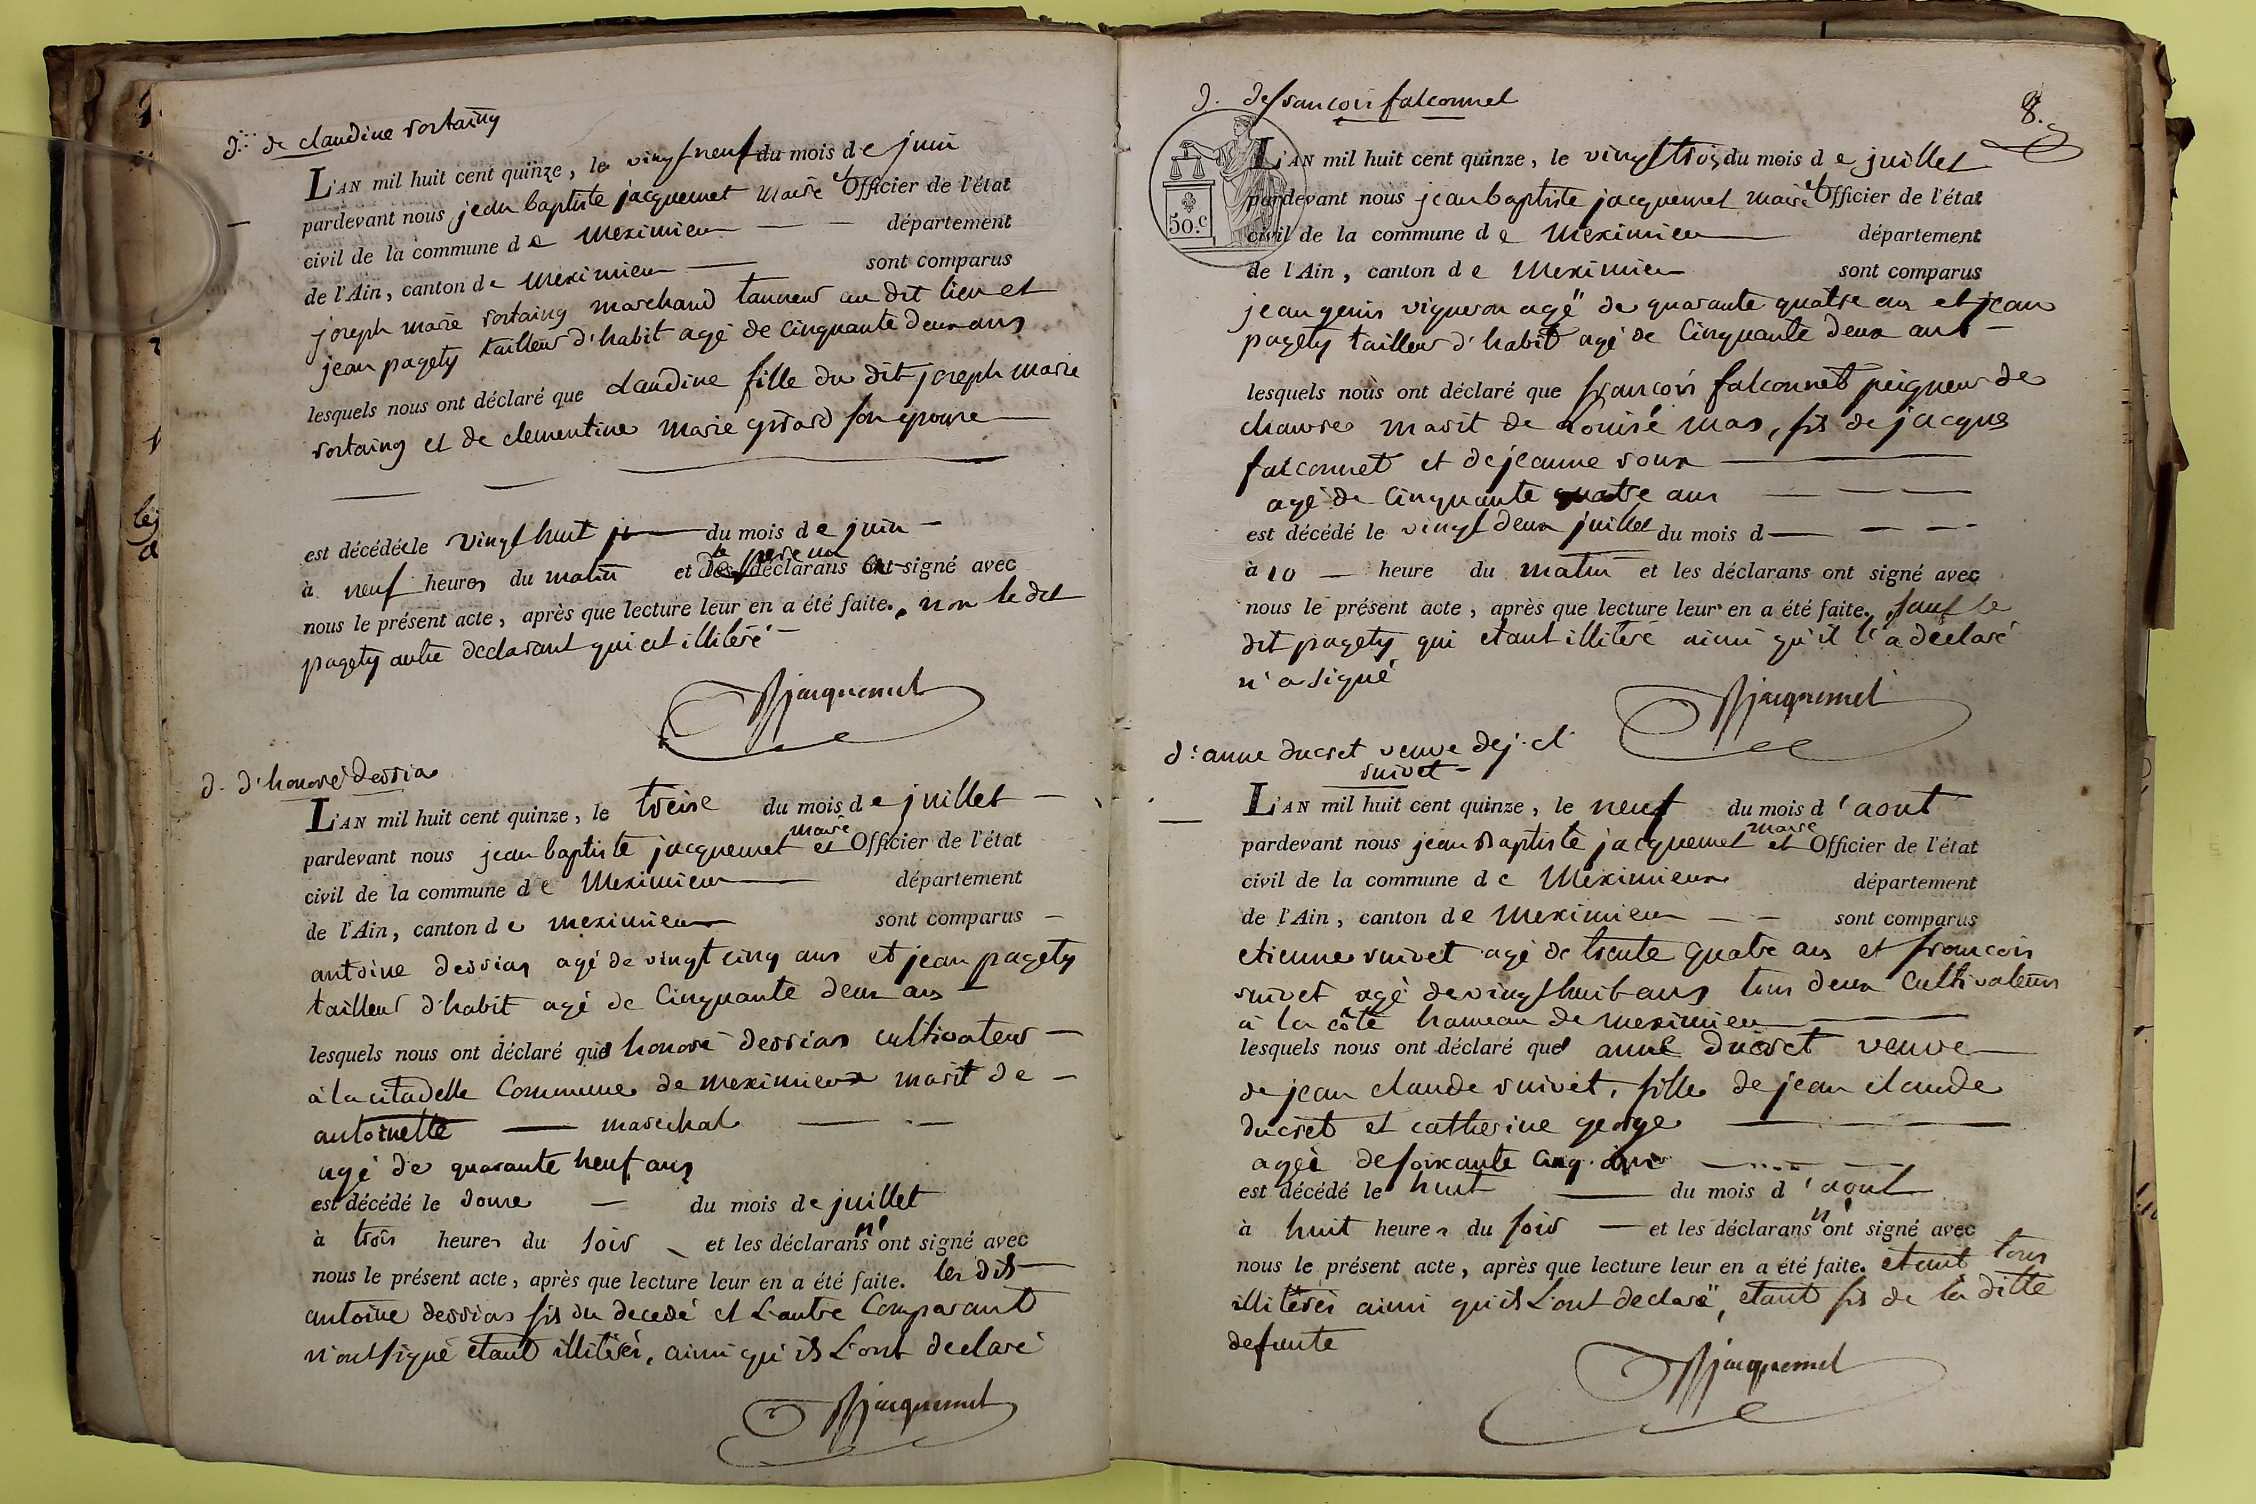 d. de claudine rostaing
L'AN mil huit cent quinze, le vingt neuf du mois de juin
pardevant nous jean baptiste jacquemet maire et Officier de l'état
civil de la commune de Meximieu département
de l'Ain, canton de Meximieu sont comparus
joseph marie rostaing marchand tanneur au dit lieu et
jean pagety tailleur d'habit agé de cinquante deux ans
lesquels nous ont déclaré que claudine fille du dit joseph marie
rostaing et de clementine marie girard son epouse
est décédée le vingt huit du mois de juin
à neuf heures du matin et le pere un des déclarans a signé avec
nous le présent acte, après que lecture leur en a été faite. non le dit
pagety autre declarant qui est illiteré
jacquemet
d. d'honoré dessias
L'AN mil huit cent quinze, le treise du mois de juillet
pardevant nous jean baptiste jacquemet maire et Officier de l'état
civil de la commune de Meximieu département
de l'Ain, canton de meximieu sont comparus
antoine dessias agé de vingt cinq ans et jean pagety
tailleur d'habit agé de cinquante deux ans
lesquels nous ont déclaré que honoré dessias cultivateur
à la citadelle Commune de meximieux marit de
antoinette marechal
agé de quarante neuf ans
est décédé le douse du mois de juillet
à trois heures du soir et les déclarans n'ont signé avec
nous le présent acte, après que lecture leur en a été faite. les dits
antoine dessias fils du decedé et l'autre Comparant
n'ont signé etant illiterés, ainsi qu'ils l'ont declaré
jacquemet
8.
d. de francois falconnet
50.c
L'AN mil huit cent quinze, le vingt trois du mois de juillet
pardevant nous jean baptiste jacquemet maire et Officier de l'état
civil de la commune de Meximieu département
de l'Ain, canton de Meximieu sont comparus
jean genis vigneron agé de quarante quatre ans et jean
pagety tailleur d'habit agé de cinquante deux ans
lesquels nous ont déclaré que francois falconnet peigneur de
chanvre marit de Louise mas, fils de jacques
falconnet et de jeanne roux
agé de cinquante quatre ans
est décédé le vingt deux juillet du mois d
à 10 heure du matin et les déclarans ont signé avec
nous le présent acte, après que lecture leur en a été faite. sauf le
dit pagety qui etant illiteré ainsi qu'il l'a declaré
n'a signé
jacquemet
d. anne ducret veuve de j. cl.
ruivet
L'AN mil huit cent quinze, le neuf du mois d'aout
pardevant nous jean Baptiste jacquemet maire et Officier de l'état
civil de la commune de Meximieux département
de l'Ain, canton de Meximieu sont comparus
etienne ruivet agé de trente quatre ans et francois
ruivet agé de vingt huit ans tous deux cultivateurs
à la côte hameau de meximieu
lesquels nous ont déclaré que anne ducret veuve
de jean claude ruivet, fille de jean claude
ducret et catherine george
agée de soixante cinq ans
est décédé le huit du mois d'aout
à huit heures du soir et les déclarans n'ont signé avec
nous le présent acte, après que lecture leur en a été faite. etant tous
illiterés ainsi qu'ils l'ont declaré, etant fils de la ditte
defunte
jacquemet